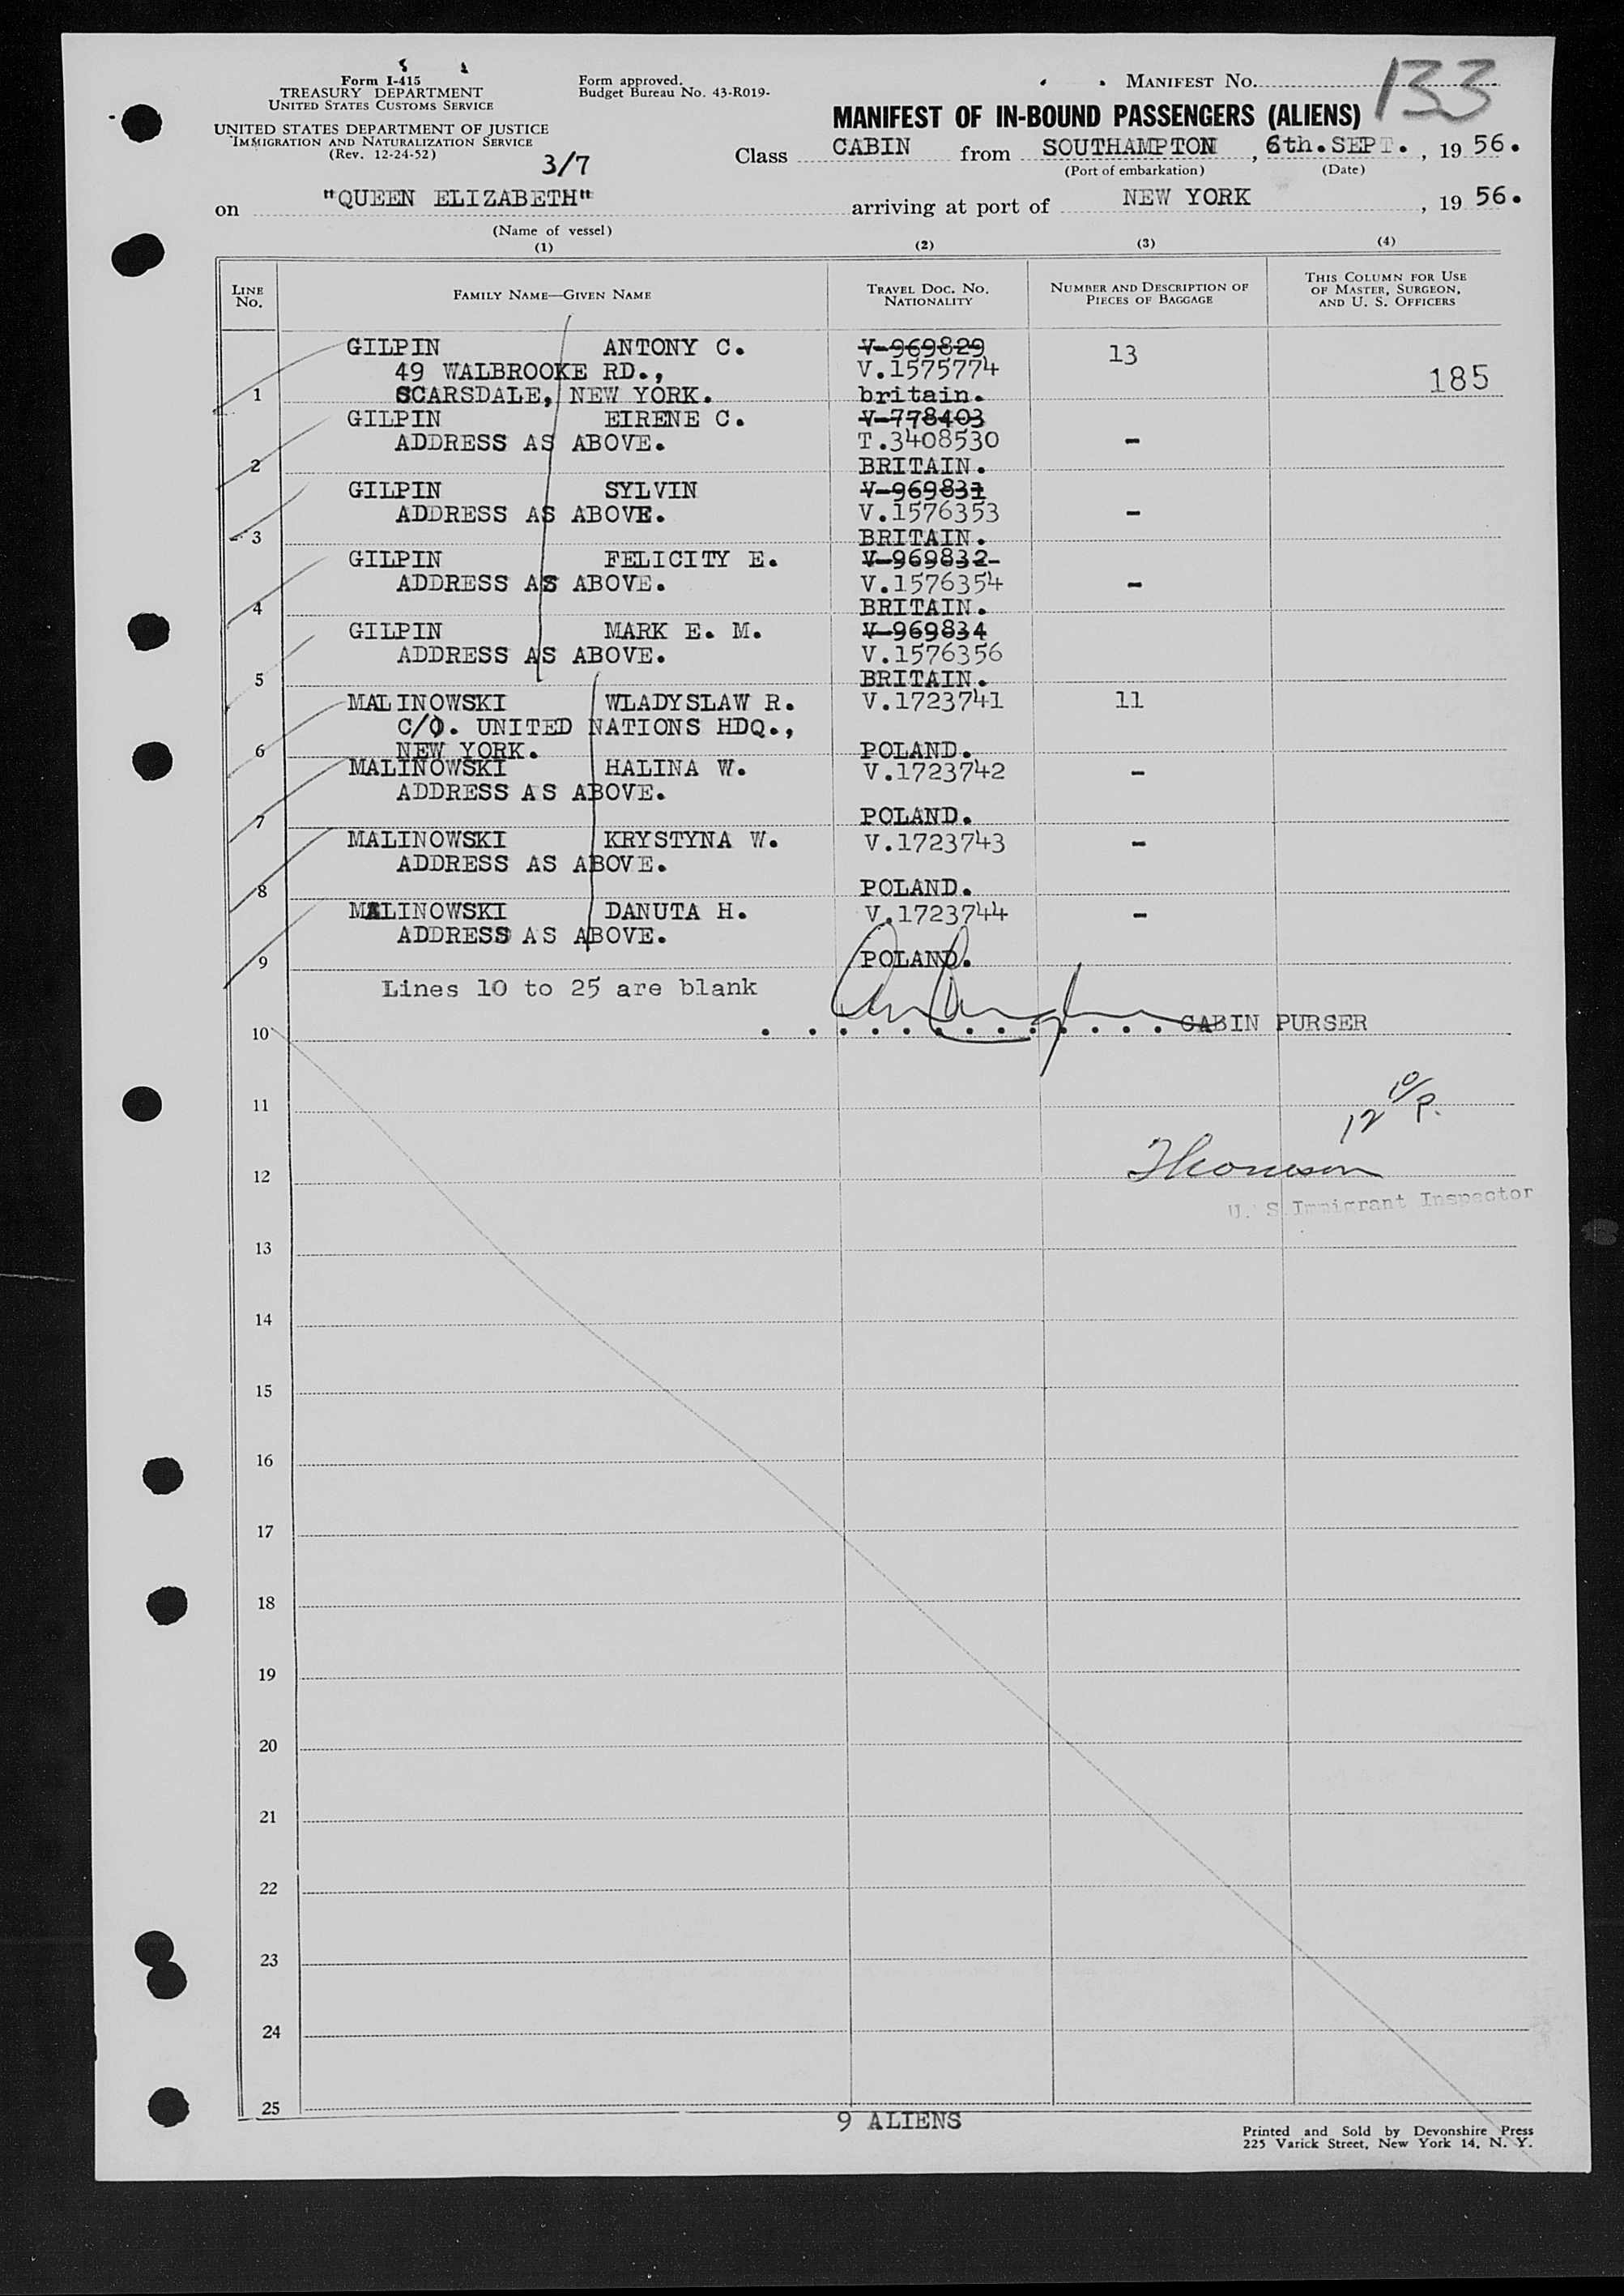 Form I-415
TREASURY DEPARTMENT
UNITED STATES CUSTOMS SERVICE
UNITED STATES DEPARTMENT OF JUSTICE
IMMIGRATION AND NATURALIZATION SERVICE
(Rev. 12-24-52)
3/7
Form approved.
Budget Bureau No. 43-R019-
MANIFEST NO. 133
MANIFEST OF IN-BOUND PASSENGERS (ALIENS)
Class CABIN from SOUTHAMPTON, 6th.SEPT., 19 56.
(Port of embarkation) (Date)
on "QUEEN ELIZABETH" arriving at port of NEW YORK, 19 56.
(Name of vessel)
(1) (2) (3) (4)
LINE NO. FAMILY NAME—GIVEN NAME TRAVEL DOC. NO. NATIONALITY NUMBER AND DESCRIPTION OF PIECES OF BAGGAGE THIS COLUMN FOR USE OF MASTER, SURGEON, AND U. S. OFFICERS
GILPIN ANTONY C. V-969829 13
49 WALBROOKE RD., V.1575774 185
1 SCARSDALE, NEW YORK. britain.
GILPIN EIRENE C. V-778403
ADDRESS AS ABOVE. T.3408530 -
2 BRITAIN.
GILPIN SYLVIN V-969831
ADDRESS AS ABOVE. V.1576353 -
3 BRITAIN.
GILPIN FELICITY E. V-969832-
ADDRESS AS ABOVE. V.1576354 -
4 BRITAIN.
GILPIN MARK E. M. V-969834
ADDRESS AS ABOVE. V.1576356
5 BRITAIN.
MALINOWSKI WLADYSLAW R. V.1723741 11
C/O. UNITED NATIONS HDQ.,
6 NEW YORK. POLAND.
MALINOWSKI HALINA W. V.1723742 -
ADDRESS AS ABOVE.
7 POLAND.
MALINOWSKI KRYSTYNA W. V.1723743 -
ADDRESS AS ABOVE.
8 POLAND.
MALINOWSKI DANUTA H. V.1723744 -
ADDRESS AS ABOVE.
9 POLAND.
Lines 10 to 25 are blank
10 CABIN PURSER
11 12 10/P.
12 Thomson
U. S. Immigrant Inspector
13
14
15
16
17
18
19
20
21
22
23
24
25
9 ALIENS
Printed and Sold by Devonshire Press
225 Varick Street, New York 14, N. Y.